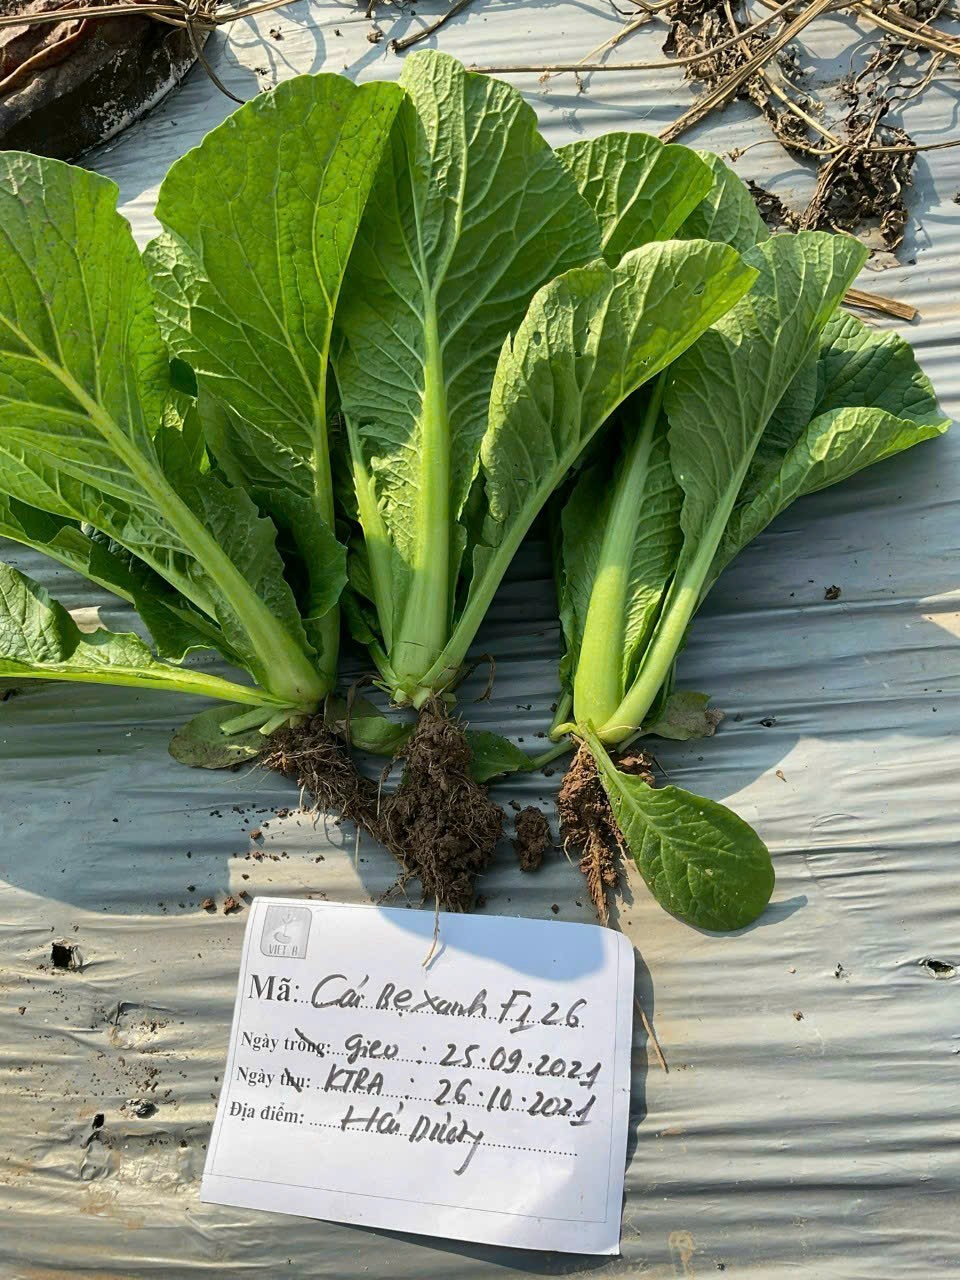 VIỆT Á
Mã: Cải Bẹ xanh F1 26
Ngày trồng: gieo : 25.09.2021
Ngày thu: KTRA : 26.10.2021
Địa điểm: Hải Dương